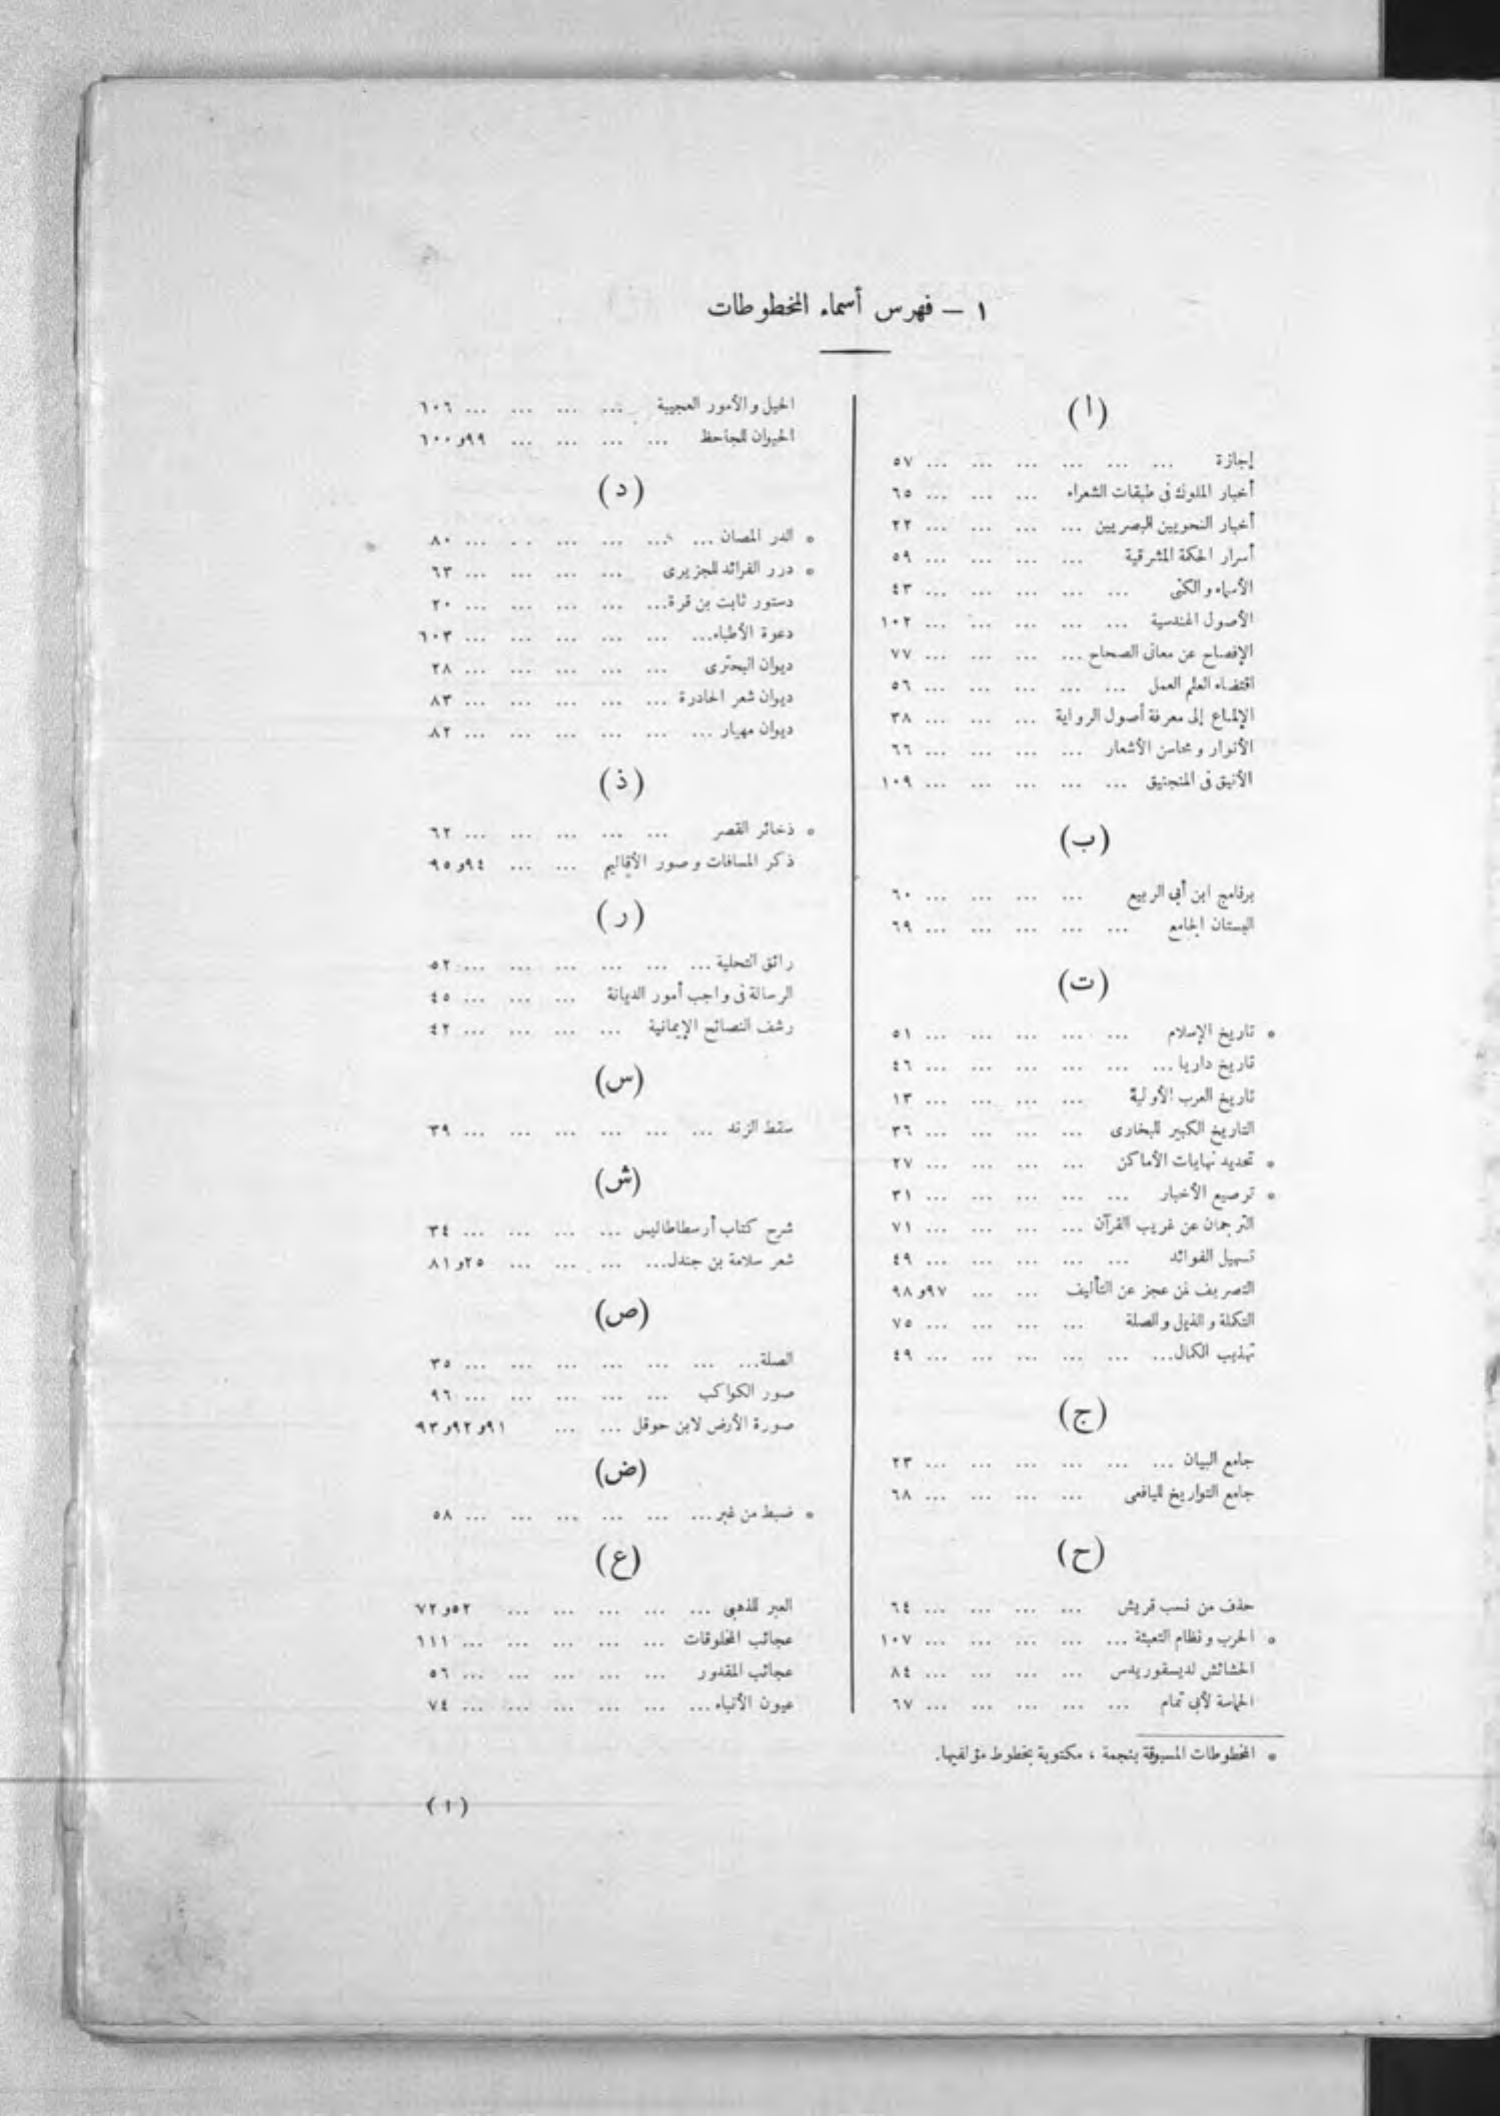 ١ – فهرس أسماء المخطوطات
(ا)
إجازة ... ... ... ... ... ... ٥٧
أخبار الملوك فى طبقات الشعراء ... ... ... ٦٥
أخبار النحويين البصريين ... ... ... ... ٢٢
أسرار الحكمة المشرقية ... ... ... ... ٥٩
الأسماء والكنى ... ... ... ... ... ٤٣
الأصول الهندسية ... ... ... ... ... ١٠٢
الإفصاح عن معانى الصحاح ... ... ... ... ٧٧
اقتضاء العلم العمل ... ... ... ... ... ٥٦
الإلماع إلى معرفة أصول الرواية ... ... ... ٣٨
الأنوار ومحاسن الأشعار ... ... ... ... ٦٦
الأنيق فى المنجنيق ... ... ... ... ... ١٠٩
(ب)
برنامج ابن أبى الربيع ... ... ... ... ٦٠
البستان الجامع ... ... ... ... ... ٦٩
(ت)
* تاريخ الإسلام ... ... ... ... ... ٥١
تاريخ داريا ... ... ... ... ... ... ٤٦
تاريخ العرب الأولية ... ... ... ... ١٣
التاريخ الكبير للبخارى ... ... ... ... ٣٦
* تحديد نهايات الأماكن ... ... ... ... ٢٧
* ترصيع الأخبار ... ... ... ... ... ٣١
الترجمان عن غريب القرآن ... ... ... ... ٧١
تسهيل الفوائد ... ... ... ... ... ٤٩
التصريف لمن عجز عن التأليف ... ... ٩٧و٩٨
التكملة والذيل والصلة ... ... ... ... ٧٥
تهذيب الكمال ... ... ... ... ... ... ٤٩
(ج)
جامع البيان ... ... ... ... ... ... ٢٣
جامع التواريخ لليافعى ... ... ... ... ٦٨
(ح)
حذف من نسب قريش ... ... ... ... ٦٤
* الحرب ونظام التعبئة ... ... ... ... ... ١٠٧
الحشائش لديسقوريدس ... ... ... ... ٨٤
الحماسة لأبى تمام ... ... ... ... ... ٦٧
* المخطوطات المسبوقة بنجمة ، مكتوبة بخطوط مؤلفيها.
الحيل والأمور العجيبة ... ... ... ... ١٠٦
الحيوان للجاحظ ... ... ... ... ٩٩و١٠٠
(د)
* الدر المصان ... ... ... ... ... ... ٨٠
* درر الفرائد للجزيرى ... ... ... ... ٦٣
دستور ثابت بن قرة ... ... ... ... ... ٢٠
دعوة الأطباء ... ... ... ... ... ... ١٠٣
ديوان البحترى ... ... ... ... ... ٢٨
ديوان شعر الحادرة ... ... ... ... ... ٨٣
ديوان مهيار ... ... ... ... ... ... ٨٢
(ذ)
* ذخائر القصر ... ... ... ... ... ٦٢
ذكر المسافات وصور الأقاليم ... ... ٩٤و٩٥
(ر)
رائق التحلية ... ... ... ... ... ... ٥٢
الرسالة فى واجب أمور الديانة ... ... ... ٤٥
رشف النصائح الإيمانية ... ... ... ... ٤٢
(س)
سقط الزند ... ... ... ... ... ... ٣٩
(ش)
شرح كتاب أرسطاطاليس ... ... ... ... ٣٤
شعر سلامة بن جندل ... ... ... ... ٢٥و٨١
(ص)
الصلة ... ... ... ... ... ... ... ٣٥
صور الكواكب ... ... ... ... ... ٩٦
صورة الأرض لابن حوقل ... ... ٩١و٩٢و٩٣
(ض)
* ضبط من غبر ... ... ... ... ... ... ٥٨
(ع)
العبر للذهبى ... ... ... ... ... ٥٢و٧٢
عجائب المخلوقات ... ... ... ... ... ١١١
عجائب المقدور ... ... ... ... ... ٥٦
عيون الأنباء ... ... ... ... ... ... ٧٤
(١)